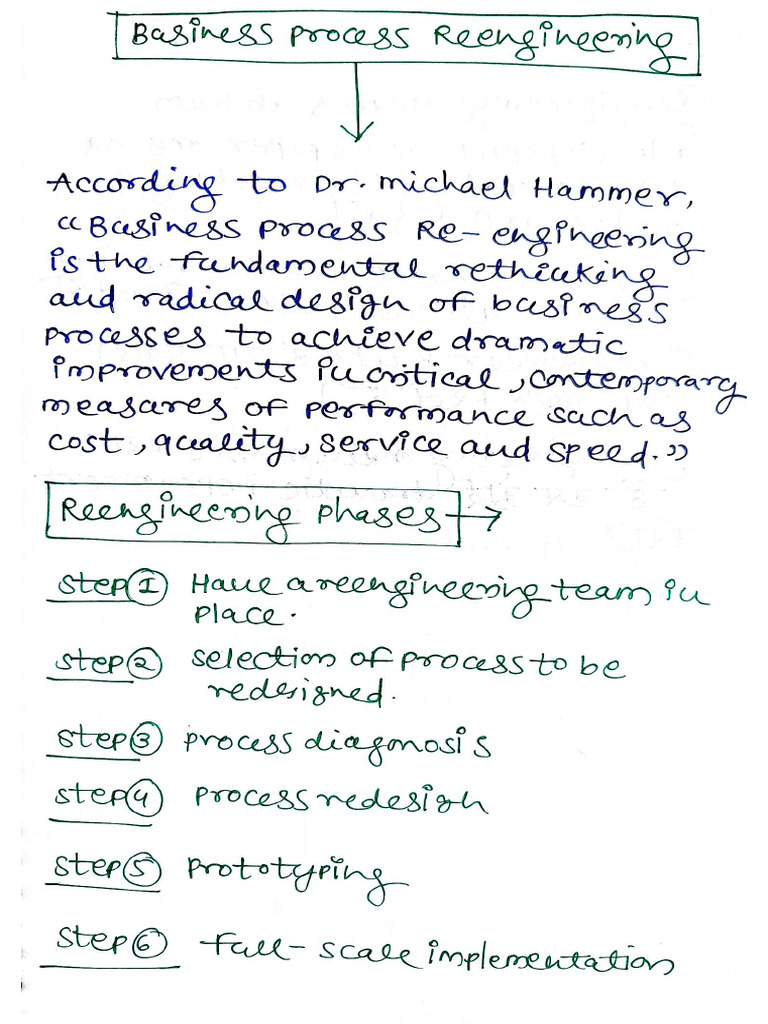 Business Process Reengineering
According to Dr. Michael Hammer,
“Business Process Re-engineering
is the fundamental rethinking
and radical design of business
processes to achieve dramatic
improvements in critical, contemporary
measures of performance such as
cost, quality, service and speed.”
Reengineering Phases
Step 1 Have a reengineering team in
place.
Step 2 Selection of process to be
redesigned.
Step 3 process diagnosis
Step 4 process redesign
Step 5 Prototyping
Step 6 full-scale implementation